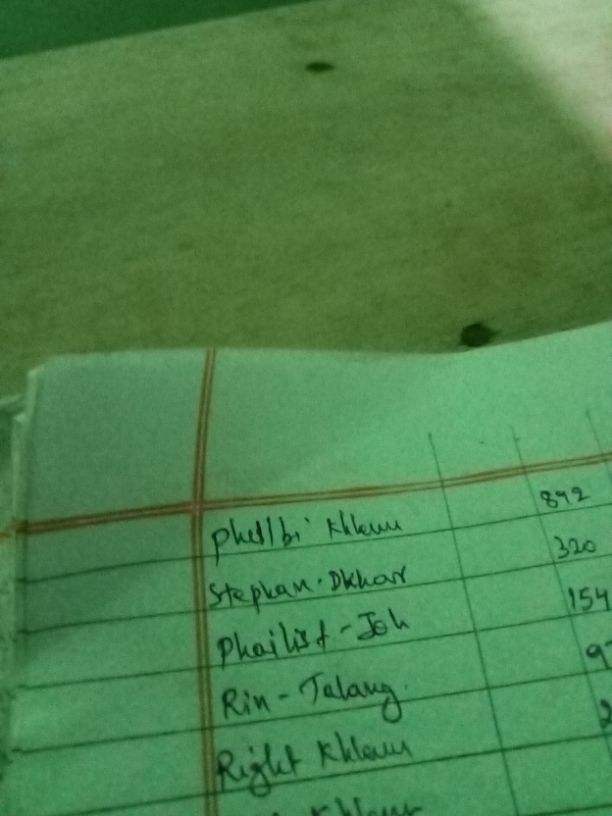 Phellbi Khlem 892
Stephan. Dkhar 320
Phailist - Joh 154
Rin - Talang. 9
Right Khlem
Khlem